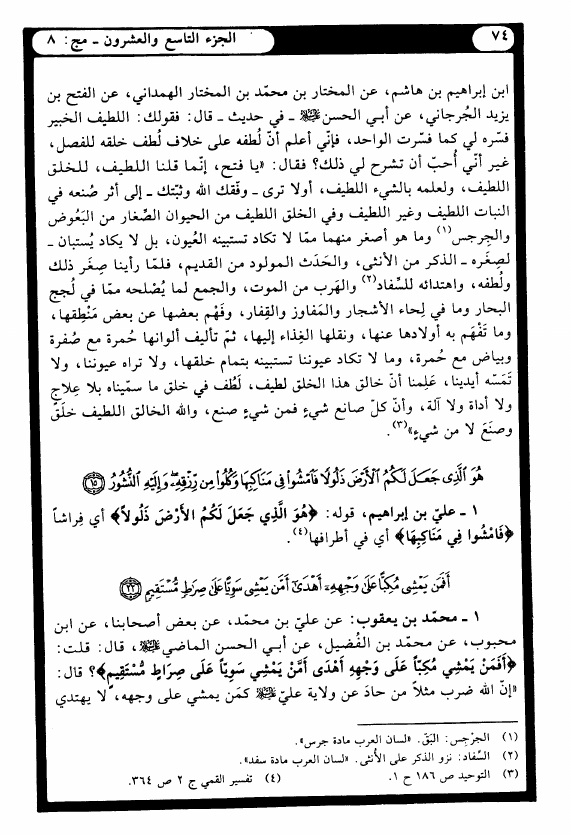 ٧٤
الجزء التاسع والعشرون ـ مج: ٨
ابن إبراهيم بن هاشم، عن المختار بن محمّد بن المختار الهمداني، عن الفتح بن
يزيد الجُرجاني، عن أبي الحسن ﷺ ـ في حديث ـ قال: فقولك: اللطيف الخبير
فسّره لي كما فسّرت الواحد، فإنّي أعلم أنّ لُطفه على خلاف لُطف خلقه للفصل،
غير أنّي أُحبّ أن تشرح لي ذلك؟ فقال: «يا فتح، إنّما قلنا اللطيف، للخلق
اللطيف، ولعلمه بالشيء اللطيف، أولا ترى ـ وفّقك الله وثبّتك ـ إلى أثر صُنعه في
النبات اللطيف وغير اللطيف وفي الخلق اللطيف من الحيوان الصِّغار من البَعُوض
والجِرجِس(١) وما هو أصغر منهما ممّا لا تكاد تستبينه العُيون، بل لا يكاد يُستبان ـ
لصِغَره ـ الذكر من الأنثى، والحَدَث المولود من القديم، فلمّا رأينا صِغَر ذلك
ولُطفه، واهتدائه للسِّفاد(٢) والهَرب من الموت، والجمع لما يُصْلحه ممّا في لُجج
البحار وما في لِحاء الأشجار والمَفاوز والقِفار، وفَهْم بعضها عن بعض مَنْطِقها،
وما تَفْهَم به أولادها عنها، ونقلها الغِذاء إليها، ثمّ تأليف ألوانها حُمرة مع صُفرة
وبياض مع حُمرة، وما لا تكاد عيوننا تستبينه بتمام خلقها، ولا تراه عيوننا، ولا
تَمَسّه أيدينا، عَلِمنا أنّ خالق هذا الخلق لطيف، لَطُف في خلق ما سمّيناه بلا عِلاجٍ
ولا أداة ولا آلة، وأنّ كلّ صانع شيءٍ فمن شيءٍ صنع، والله الخالق اللطيف خلَقَ
وصنَعَ لا من شيءٍ»(٣).
هُوَ الَّذِى جَعَلَ لَكُمُ الْأَرْضَ ذَلُولًا فَامْشُوا فِى مَنَاكِبِهَا وَكُلُوا مِن رِّزْقِهِۦ وَإِلَيْهِ النُّشُورُ ﴿١٥﴾
١ ـ عليّ بن إبراهيم، قوله: ﴿هُوَ الَّذِي جَعَلَ لَكُمُ الْأَرْضَ ذَلُولاً﴾ أي فِراشاً
﴿فَامْشُوا فِي مَنَاكِبِهَا﴾ أي في أطرافها(٤).
أَفَمَن يَمْشِى مُكِبًّا عَلَىٰ وَجْهِهِۦٓ أَهْدَىٰٓ أَمَّن يَمْشِى سَوِيًّا عَلَىٰ صِرَاطٍ مُّسْتَقِيمٍ ﴿٢٢﴾
١ ـ محمّد بن يعقوب: عن عليّ بن محمّد، عن بعض أصحابنا، عن ابن
محبوب، عن محمّد بن الفُضيل، عن أبي الحسن الماضي ﷺ، قال: قلت:
﴿أَفَمَنْ يَمْشِي مُكِبّاً عَلَى وَجْهِهِ أَهْدَى أَمَّنْ يَمْشِي سَوِيّاً عَلَى صِرَاطٍ مُّسْتَقِيمٍ﴾؟ قال:
«إنّ الله ضرب مثلاً من حادَ عن ولاية عليّ ﷺ كمَن يمشي على وجهه، لا يهتدي
(١) الجرْجِس: البَقّ. «لسان العرب مادة جرس».
(٢) السِّفاد: نزو الذكر على الأُنثى. «لسان العرب مادة سفد».
(٣) التوحيد ص ١٨٦ ح ١.
(٤) تفسير القمي ج ٢ ص ٣٦٤.